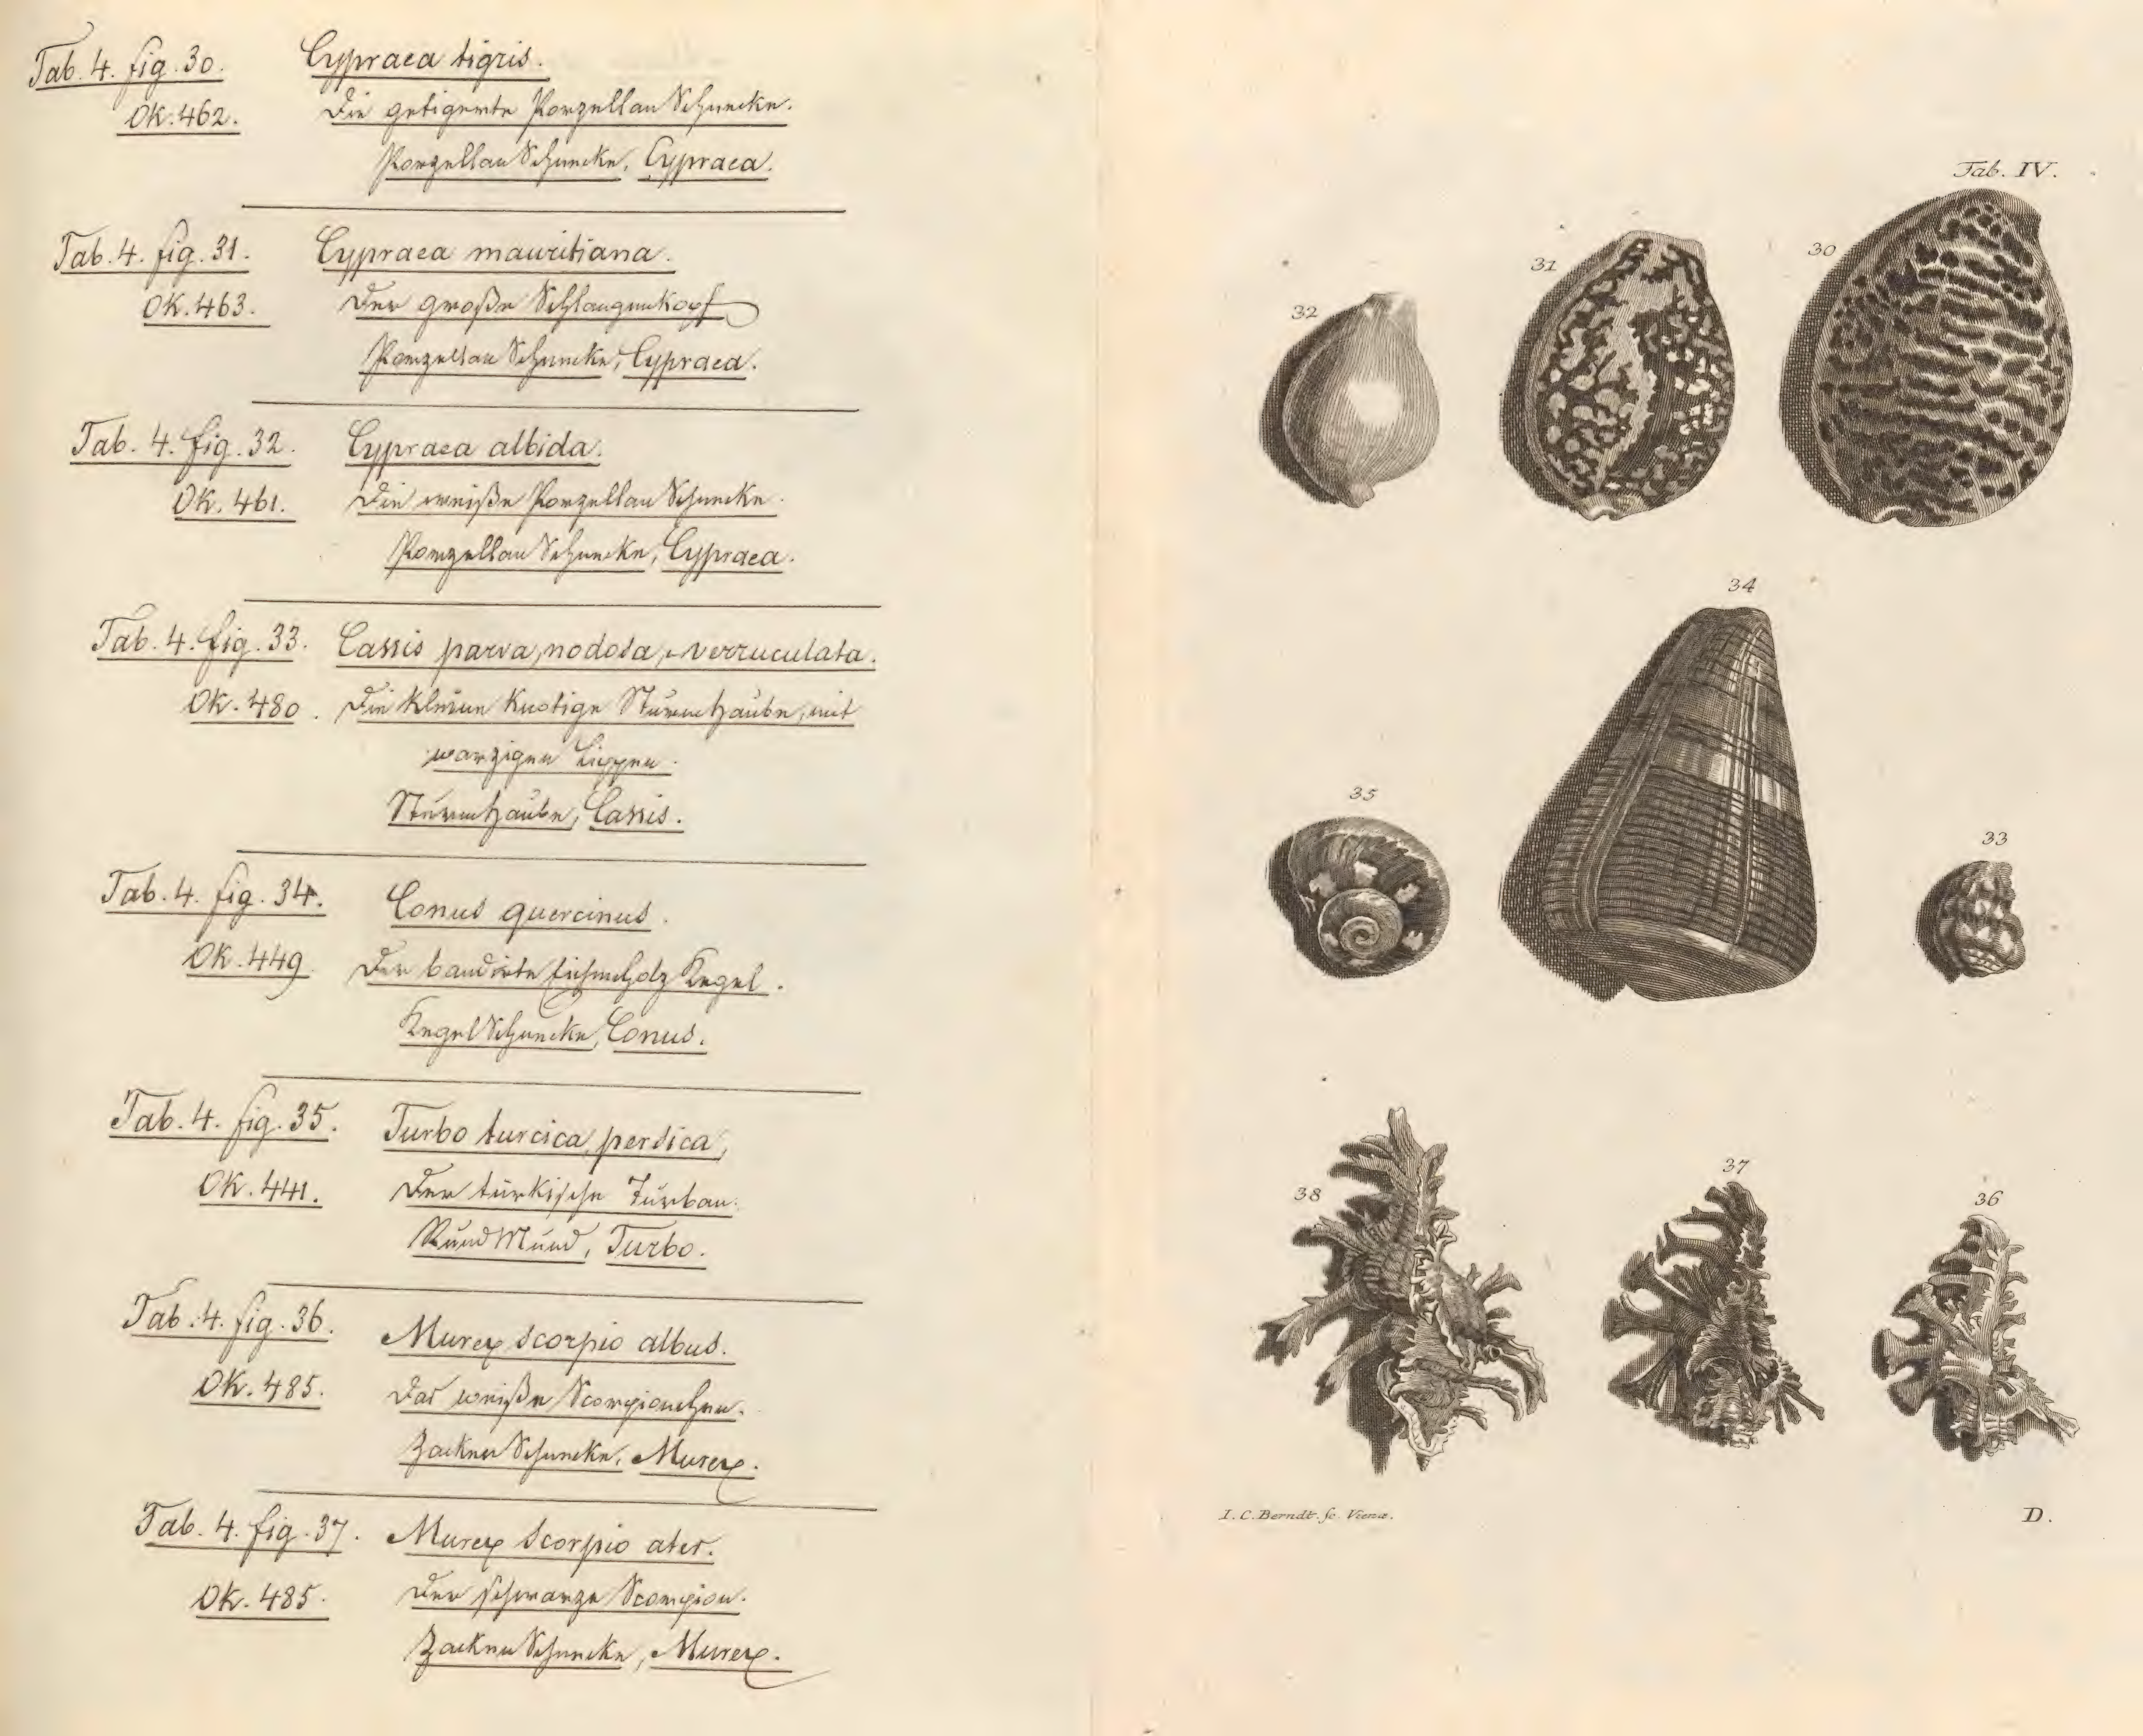 Tab. 4. fig. 30. Cypraea tigris.
OK. 462. Die getigerte Porzellan Schnecke.
Porzellan Schnecke, Cypraea.
Tab. 4. fig. 31. Cypraea mauritiana.
OK. 463. Der große Schlangenkopf
Porzellan Schnecke, Cypraea.
Tab. 4. fig. 32. Cypraea albida.
OK. 461. Die weiße Porzellan Schnecke.
Porzellan Schnecke, Cypraea.
Tab. 4. fig. 33. Cassis parva, nodosa, verruculata.
OK. 480. Die kleine knotige Sturmhaube, mit
warzigen Lippen.
Sturmhaube, Cassis.
Tab. 4. fig. 34. Conus quercinus.
OK. 449. Der bandirte Eichenholz Kegel.
Kegel Schnecke, Conus.
Tab. 4. fig. 35. Turbo turcica, persica,
OK. 441. Der türkische Turban.
Rund Mund, Turbo.
Tab. 4. fig. 36. Murex scorpio albus.
OK. 485. Das weiße Scorpionchen.
Zacken Schnecke, Murex.
Tab. 4. fig. 37. Murex scorpio ater.
OK. 485. Der schwarze Scorpion.
Zacken Schnecke, Murex.
Tab. IV.
30
31
32
34
35
33
38
37
36
I. C. Berndt. sc. Vienæ.
D.